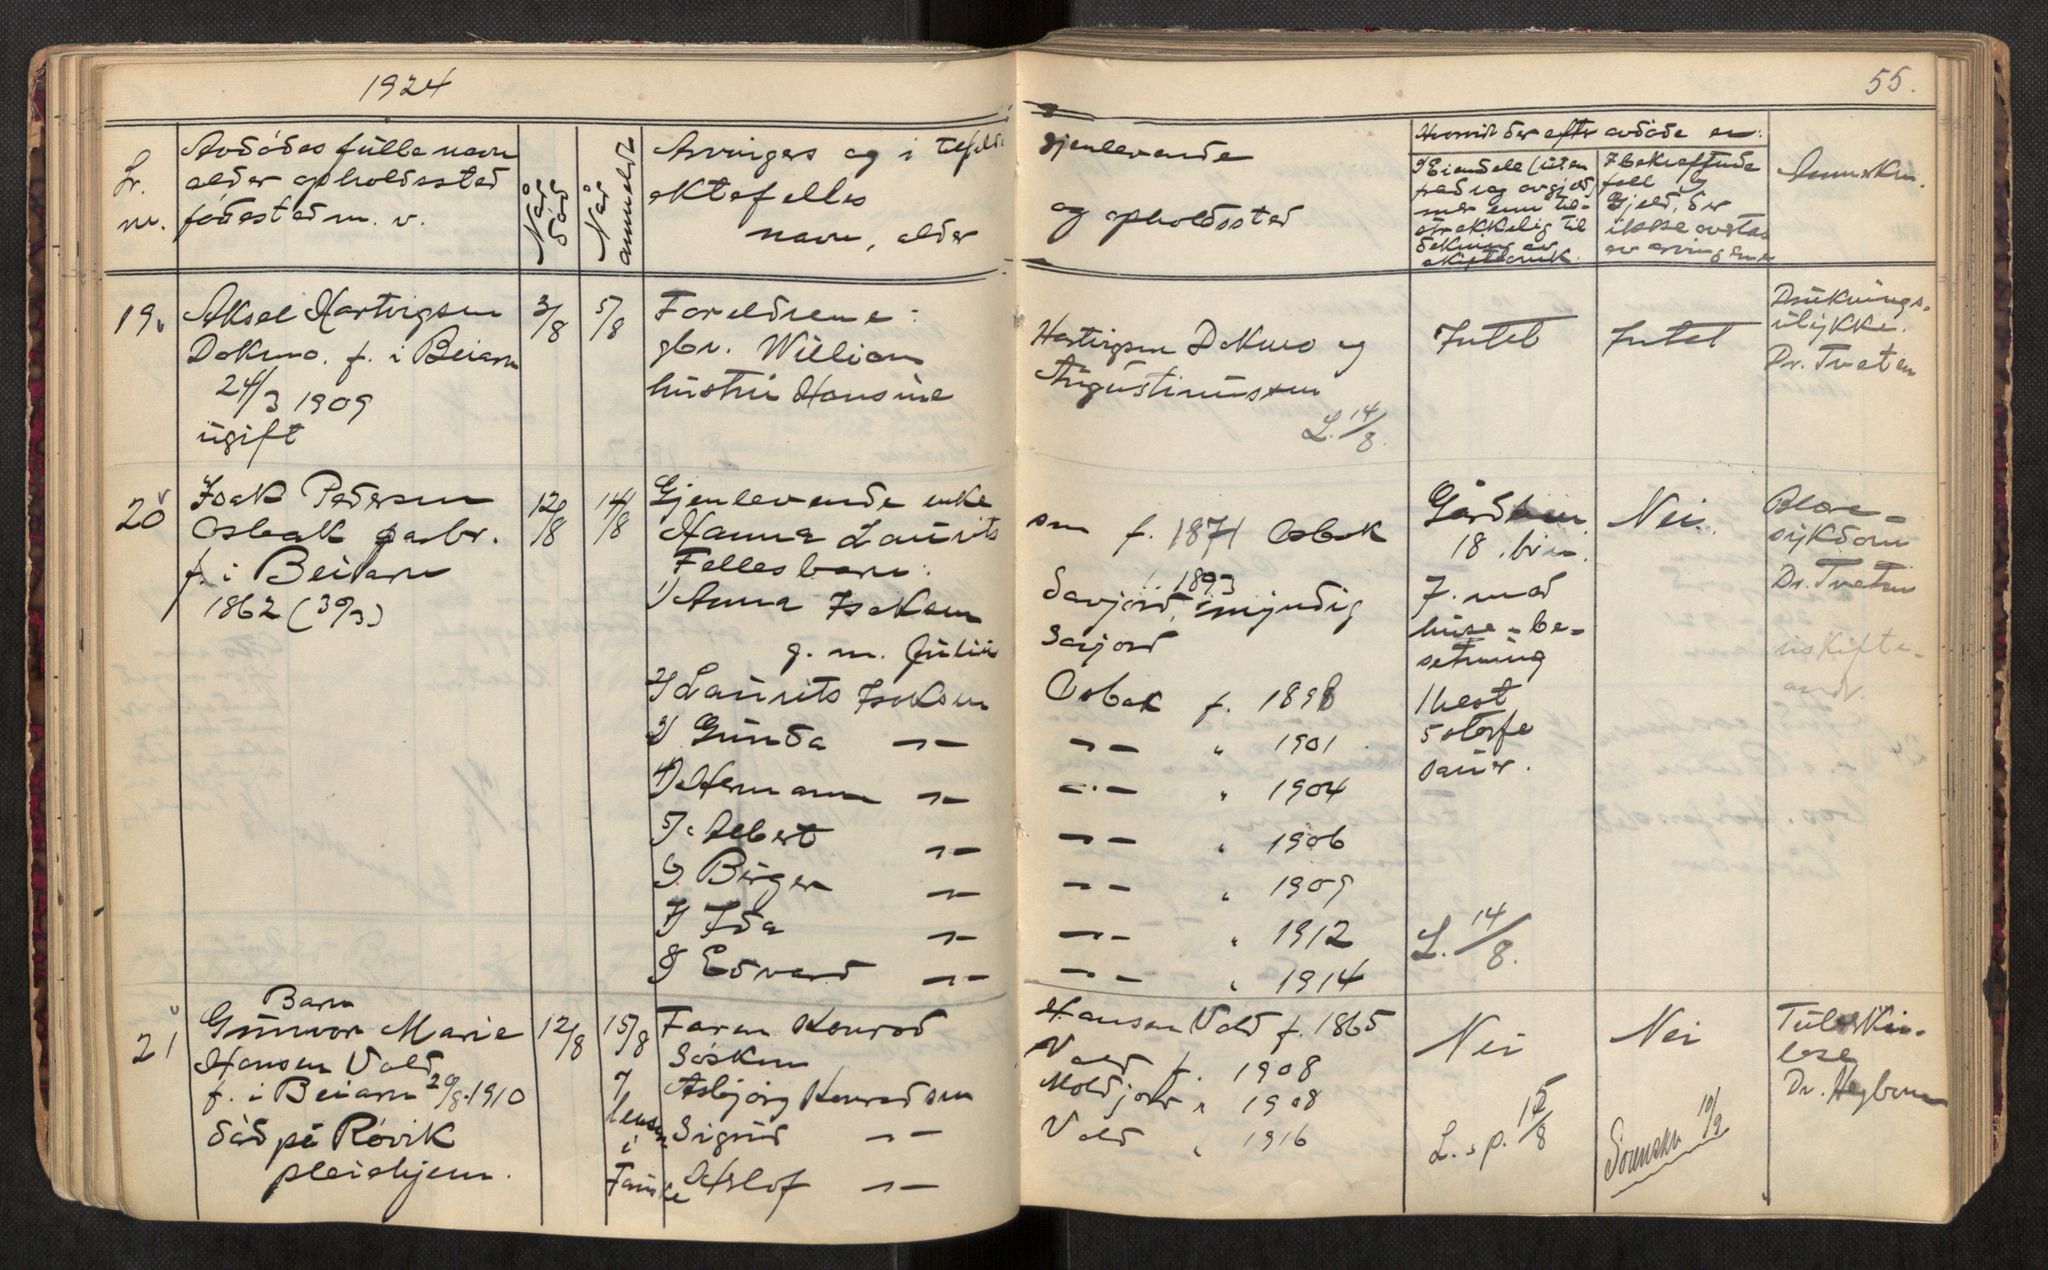 1924
55.
Lr.
nr.
Avdødes fulle navn
alder opholdssted
fødested m. v.
Når
død
Når
anmeldt
Arvingers og i tilfelde
ektefelles
navn, alder
gjenlevende
og opholdssted
Hvorvidt der efter avdøde er:
Eiendele (uten
fradrag av gjeld)
mer enn til-
strekkelig til
dekning av
skifteomk.
I bekreftende
fall og
gjeld, der
ikke overtas
av arvingene
Anmerkn.
19.
Aksel Hartvigsen
Dokmo. f. i Beiarn
24/3 1909
ugift
3/8
5/8
Foreldrene:
gbr. William
hustru Hansine
Hartvigsen Dokmo og
Augustinussen
L. 14/8.
Intet
Intet
Druknings-
ulykke.
Dr. Tveten
20
Isak Pedersen
Osbak garbr.
f. i Beiarn
1862 (30/3)
12/8
14/8
Gjenlevende enke
Hanna Laurits
Fellesbarn:
1) Anna Isaksen
g. m. Julius
2) Laurits Isaksen
3) Gunda —"—
4) Hermann —"—
5) Albert —"—
6) Birger —"—
7) Ida —"—
8) Edvard —"—
sen f. 1871 Osbak
f. 1893
Savjord, myndig
Savjord
Osbak f. 1898
—"— " 1901.
—"— " 1904
—"— " 1906
—"— " 1909
—"— " 1912
—"— " 1914
18. br.n.
7. med
huse - be-
setning
1 hest
5 storfe
sauer.
L. 14/8.
Nei.
Blære-
sykdom
Dr. Tveten
uskifte-
andr.
21
Barn
Gunvor Marie
Hansen Vold
f. i Beiarn 29/8.1910
død på Røvik
pleiehjem.
12/8
15/8
Faren Konrad
Søsken
Asbjørg Konradsen
Sigrid —"—
Aslof —"—
7/
lensm
i
Fauske
Hansen Vold f. 1865
Vold f. 1908
Moldjord " 1908
Vold " 1916
Nei
L. s p. 15/8
Nei
Sorenskr 10/9
Tuberku-
lose
Dr. Hegbom